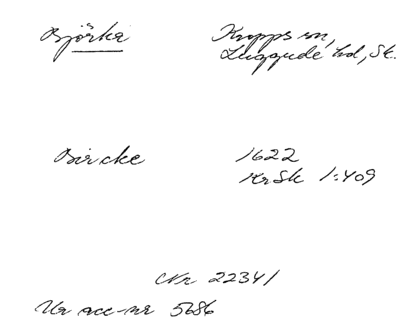 Björka Kropps sn,
Luggude hd, Sk.
Bircke 1622
KrSk 1:409
Nr 22341
Ur acc-nr 5686